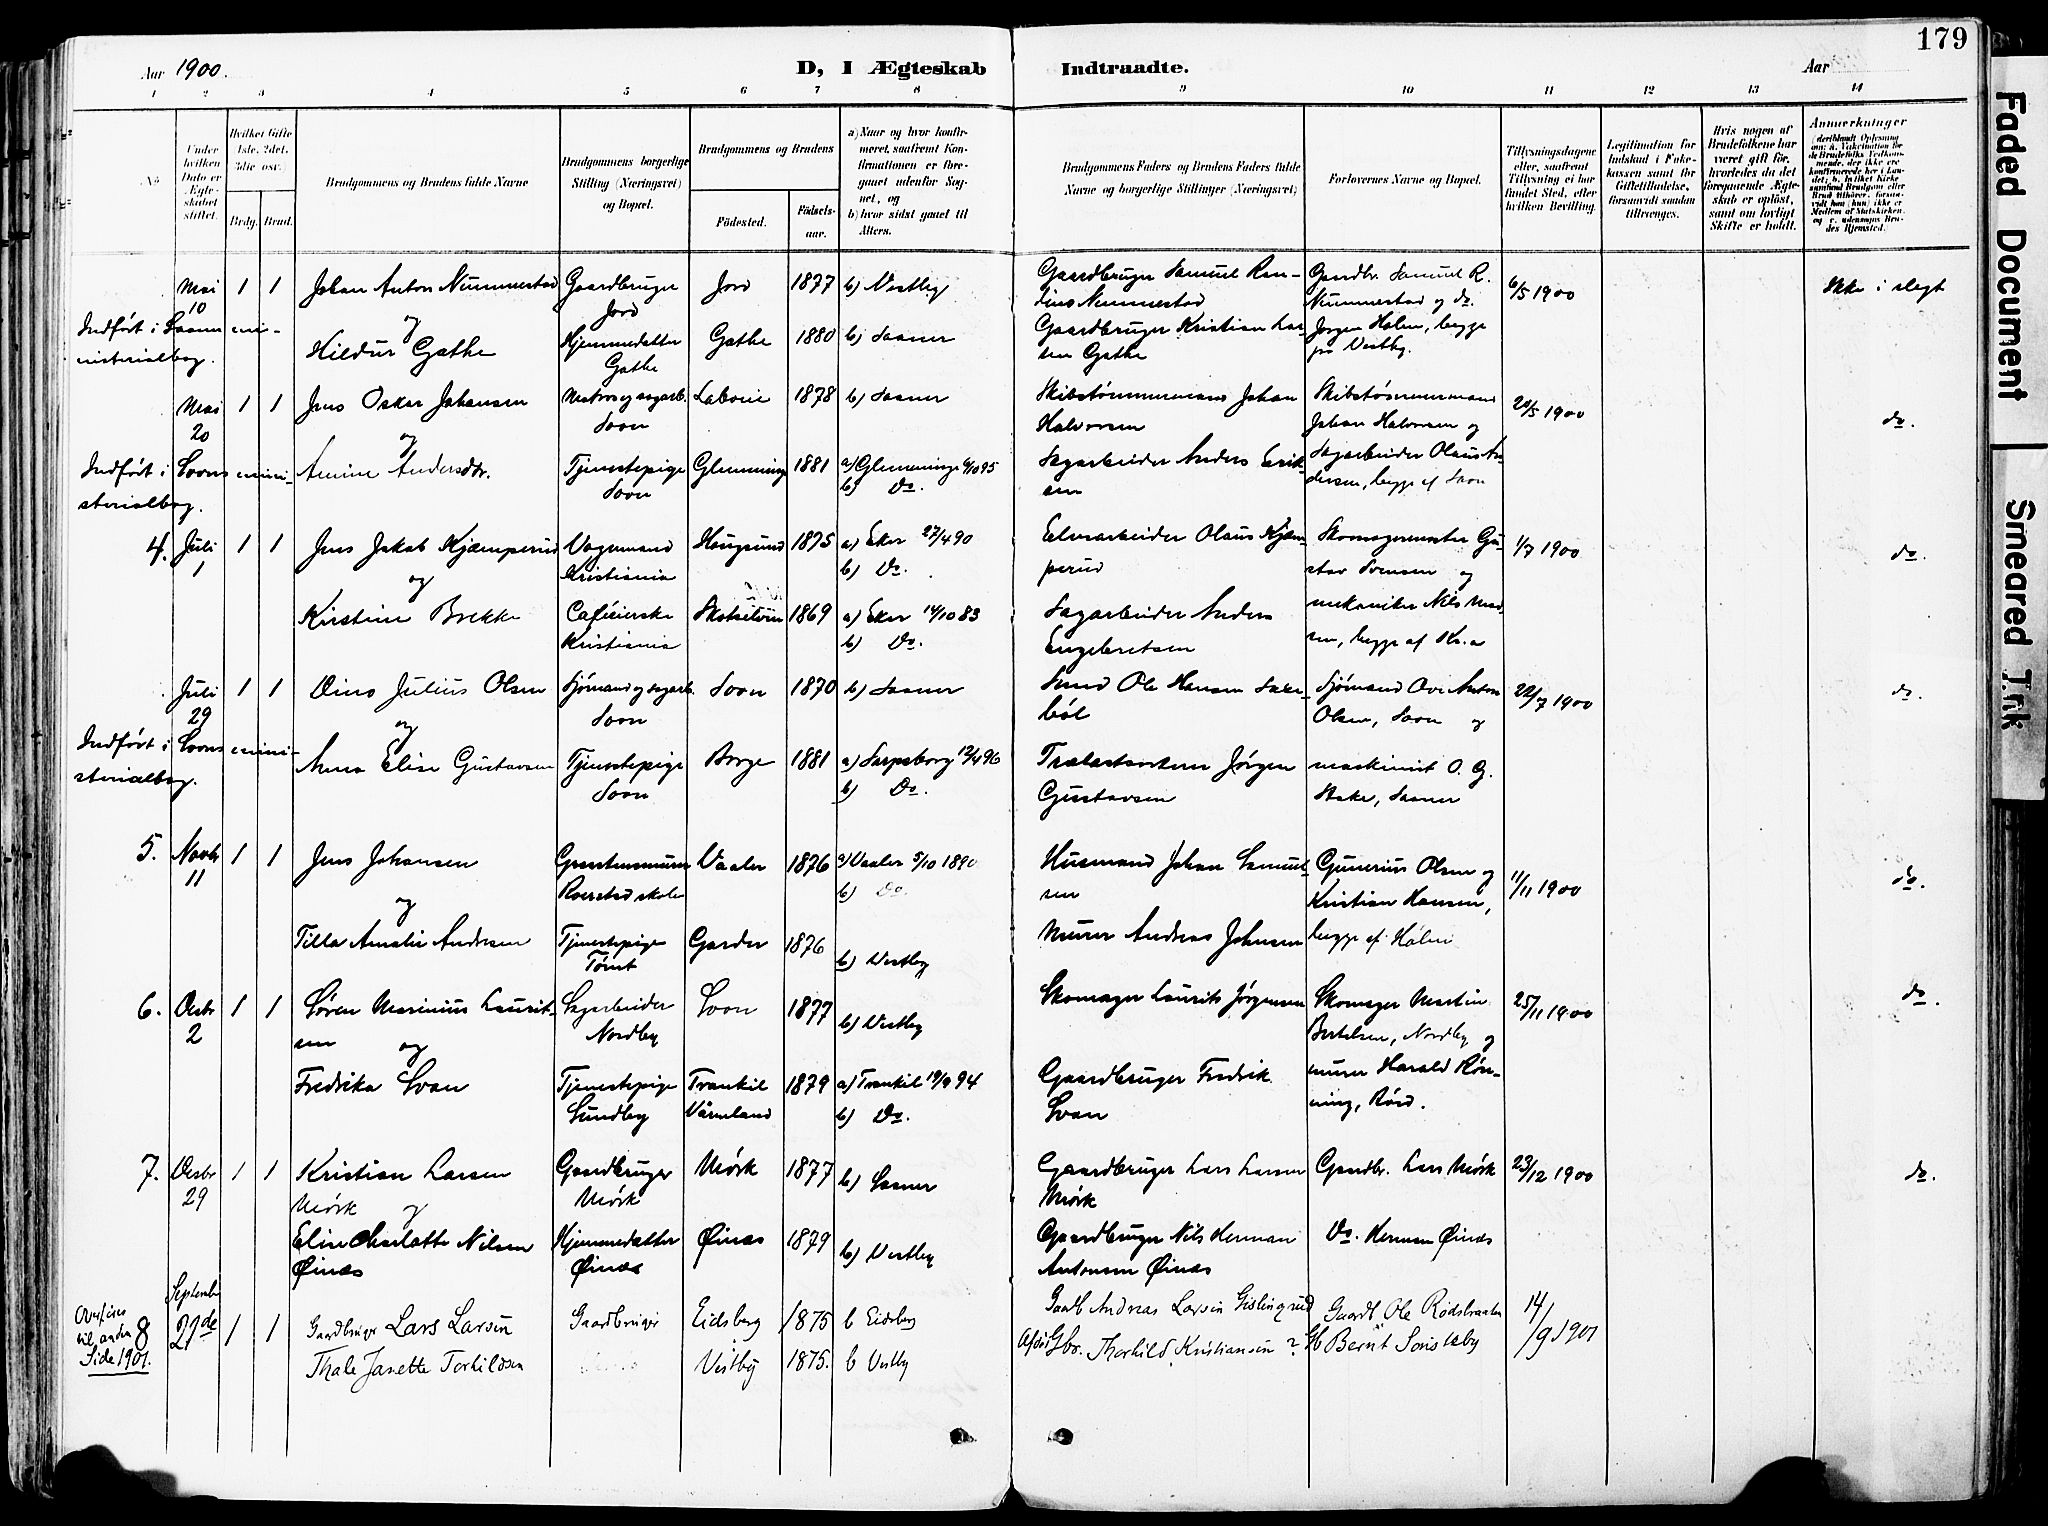 179
Aar 1900.
D, I Ægteskab Indtraadte.
Aar
1 2 3 4 5 6 7 8 9 10 11 12 13 14
No.
Under hvilken Dato er Ægteskabet stiftet.
Hvilket Gifte 1ste, 2det, 3die osv.
Brdg. Brud.
Brudgommens og Brudens fulde Navne
Brudgommens borgerlige Stilling (Næringsvei) og Bopæl.
Brudgommens og Brudens
Födested. Födsels-aar.
a) Naar og hvor konfirmeret, saafremt Konfirmationen er foregaaet udenfor Sognet, og
b) hvor sidst gaaet til Alters.
Brudgommens Faders og Brudens Faders fulde Navne og borgerlige Stillinger (Næringsvei)
Forlovernes Navne og Bopæl.
Tillysningsdagene eller, saafremt Tillysning ei har fundet Sted, efter hvilken Bevilling.
Legitimation for Indskud i Enkekassen samt for Giftetilladelse, forsaavidt saadan tiltrænges.
Hvis nogen af Brudefolkene har været gift før, hvorledes da det foregaaende Ægteskab er opløst, samt om lovligt Skifte er holdt.
Anmerkninger
Mai 10 1 1 Johan Anton Nummestad Gaardbruger Jord Jord 1877 b) Vestby Gaardbruger Samuel Nummestad Gaardbr. Samuel R. Nummestad og do. 6/5 1900 Ikke i slegt
Indført i Saaner ministerialbog.
og
Hildur Gathe Hjemmedatter Gathe Gathe 1880 b) Saaner Gaardbruger Kristian Larsen Gathe Jørgen Holm, begge pr Vestby.
Mai 20 1 1 Jens Oskar Johansen Matros og sagarb. Soon Laboie 1878 b) Saaner Skibstømmermand Johan Halvorsen Skibstømmermand Johan Halvorsen og 20/5 1900 do.
Indført i Soons ministerialbog.
og
Amine Andersdtr. Tjenestepige Soon Glemminge 1881 a) Glemminge 6/10 95 b) Do. Sagarbeider Anders Eriksen Sagarbeider Olaus Andersen, begge af Soon
4. Juli 1 1 1 Jens Jakob Kjæmperud Vognmand Kristiania Hougsund 1875 a) Eker 27/4 90 b) Do. Elvearbeider Olaus Kjæmperud Skomagermester Gustav Svensen og 1/7 1900 do.
og
Kirstine Brekke Caféierske Kristiania Skotselven 1869 a) Eker 14/10 83 b) Do. Sagarbeider Anders Engebretsen mekaniker Nils Madsen, begge af Kr.a
Juli 29 1 1 Dines Julius Olsen Sjømand og sagarb. Soon Soon 1870 b) Saaner Smed Ole Hansen Sjømand Ove Anton Olsen, Soon og 22/7 1900 do.
Indført i Soons ministerialbog.
og
Anna Elise Gustavsen Tjenestepige Soon Borge 1881 a) Sarpsborg 12/4 96 b) Do. Jørgen Gustavsen maskinist O. G. Stake, Saaner
5. Novbr 11 1 1 Jens Johansen Roerstad skole Vaaler 1876 a) Vaaler 5/10 1890 b) Do. Husmand Johan Samuelsen Gunerius Olsen og Kristian Hansen, 11/11 1900 do.
og
Tilla Amalie Andresen Tjenestepige Tømt Garder 1876 b) Vestby Murer Andreas Johnsen begge af Hølen
6. Desbr 2 1 1 Søren Marinius Lauritsen Sagarbeider Nordby Soon 1877 b) Vestby Skomager Laurits Jørgensen Skomager Martin Bertelsen, Nordby og 25/11 1900 do.
og
Fredrika Svan Tjenestepige Sundby Trankil Värmland 1879 a) Trankil 19/9 94 b) Do. Gaardbruger Fredrik Svan murer Harald Rønning, Røed.
7. Desbr 29 1 1 Kristian Larsen Mørk Gaardbruger Mørk Mørk 1877 b) Saaner Gaardbruger Lars Larsen Mørk Gaardbr. Lars Mørk 23/12 1900 do.
og
Elise Charlotte Nilsen Øinæs Hjemmedatter Øinæs Øinæs 1879 b) Vestby Gaardbruger Nils Herman Antonsen Øinæs Do. Herman Øinæs
Overføres til anden Side 1901.
8 September 21de 1 1 Gaardbruger Lars Larsen Gaardbruger Eidsberg 1875 b Eidsberg Gaardb Andreas Larsen Gislingrud Gaardb. Ole Rødsbraaten 14/9 1901
Thale Janette Torkildsen Vestby 1875. b Vestby Gbr. Thorkild Kristiansen Gb Bernt Sonsteby
Faded Document
Smeared Ink